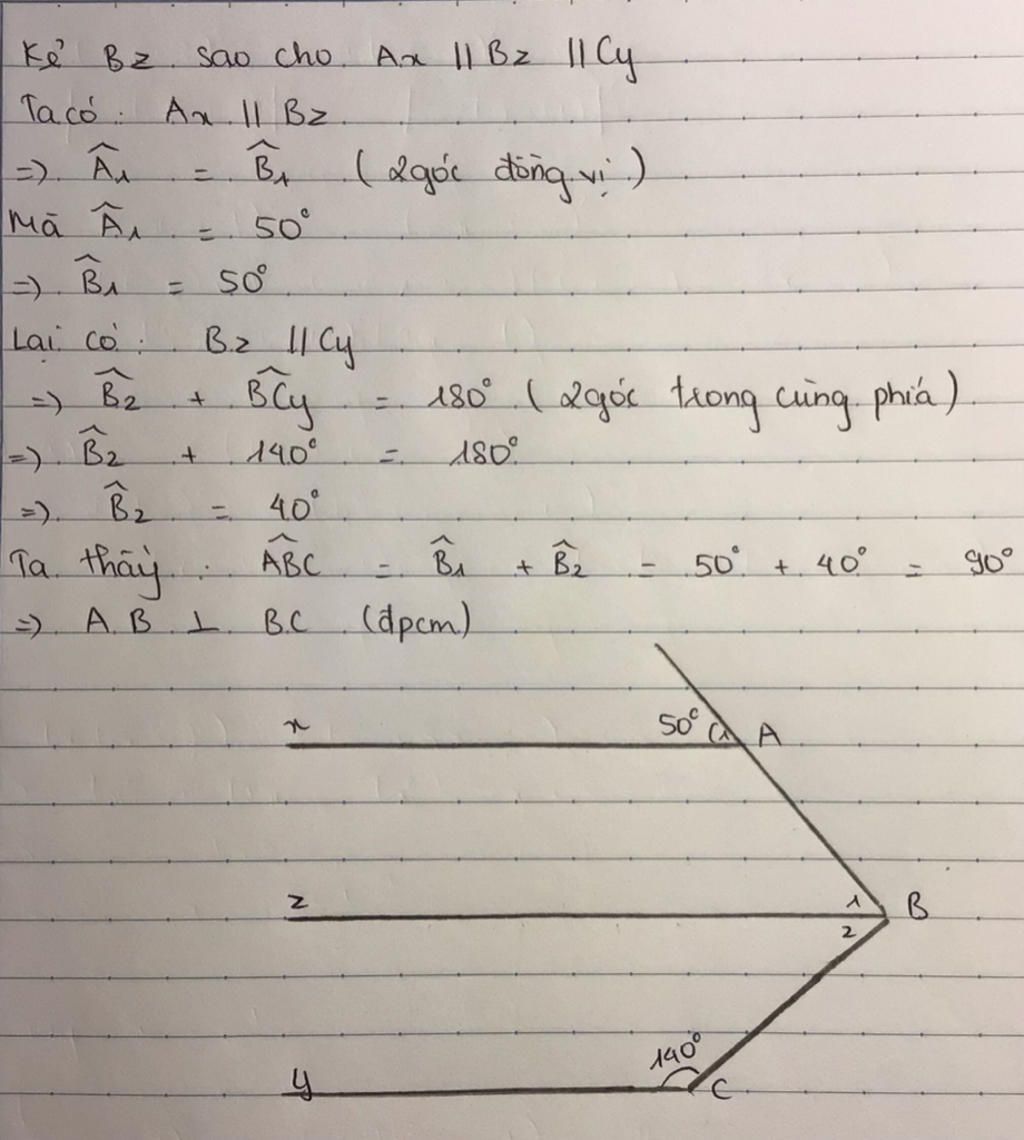 Kẻ Bz sao cho Ax // Bz // Cy
Ta có: Ax // Bz
=> Â₁ = B̂₁ (2 góc đồng vị)
Mà Â₁ = 50°
=> B̂₁ = 50°
Lại có: Bz // Cy
=> B̂₂ + B̂Cy = 180° (2 góc trong cùng phía)
=> B̂₂ + 140° = 180°
=> B̂₂ = 40°
Ta thấy: ÂBC = B̂₁ + B̂₂ = 50° + 40° = 90°
=> AB ⊥ BC (đpcm)
x 50° 1 A
z 1 B
2
140°
y C